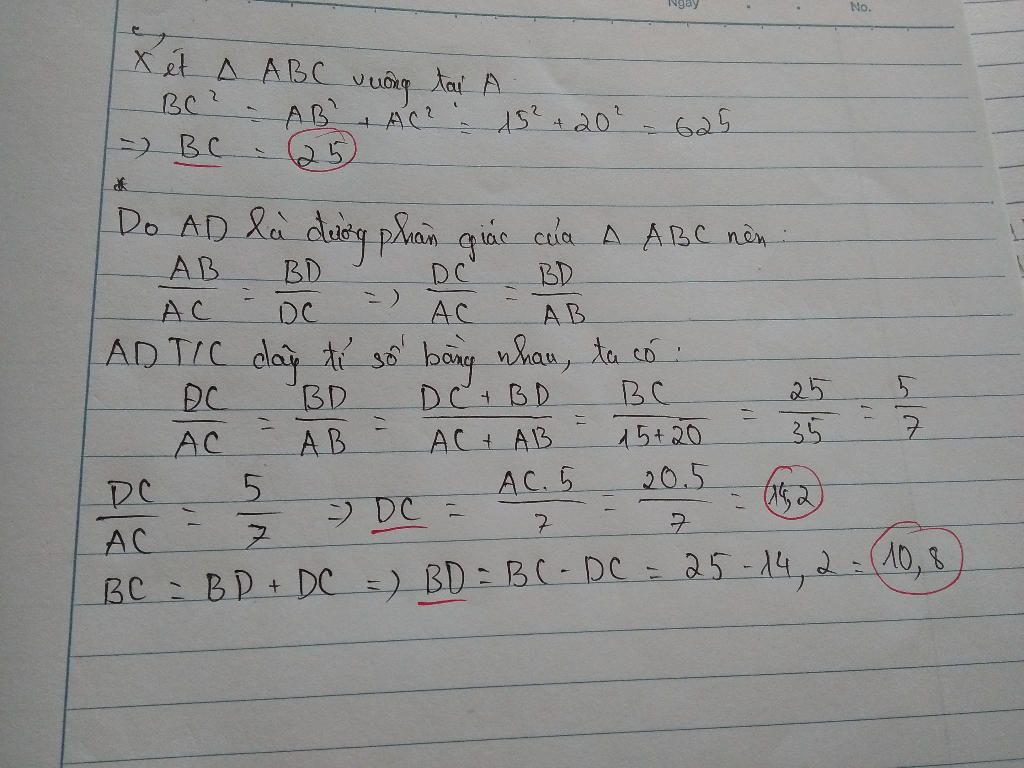 Ngày
No.
c,
Xét Δ ABC vuông tại A
BC² = AB² + AC² = 15² + 20² = 625
=> BC = 25
*
Do AD là đường phân giác của Δ ABC nên:
AB/AC = BD/DC => DC/AC = BD/AB
ADT/C dãy tỉ số bằng nhau, ta có:
DC/AC = BD/AB = DC + BD/AC + AB = BC/15+20 = 25/35 = 5/7
DC/AC = 5/7 => DC = AC.5/7 = 20.5/7 = 14,2
BC = BD + DC => BD = BC - DC = 25 - 14,2 = 10,8